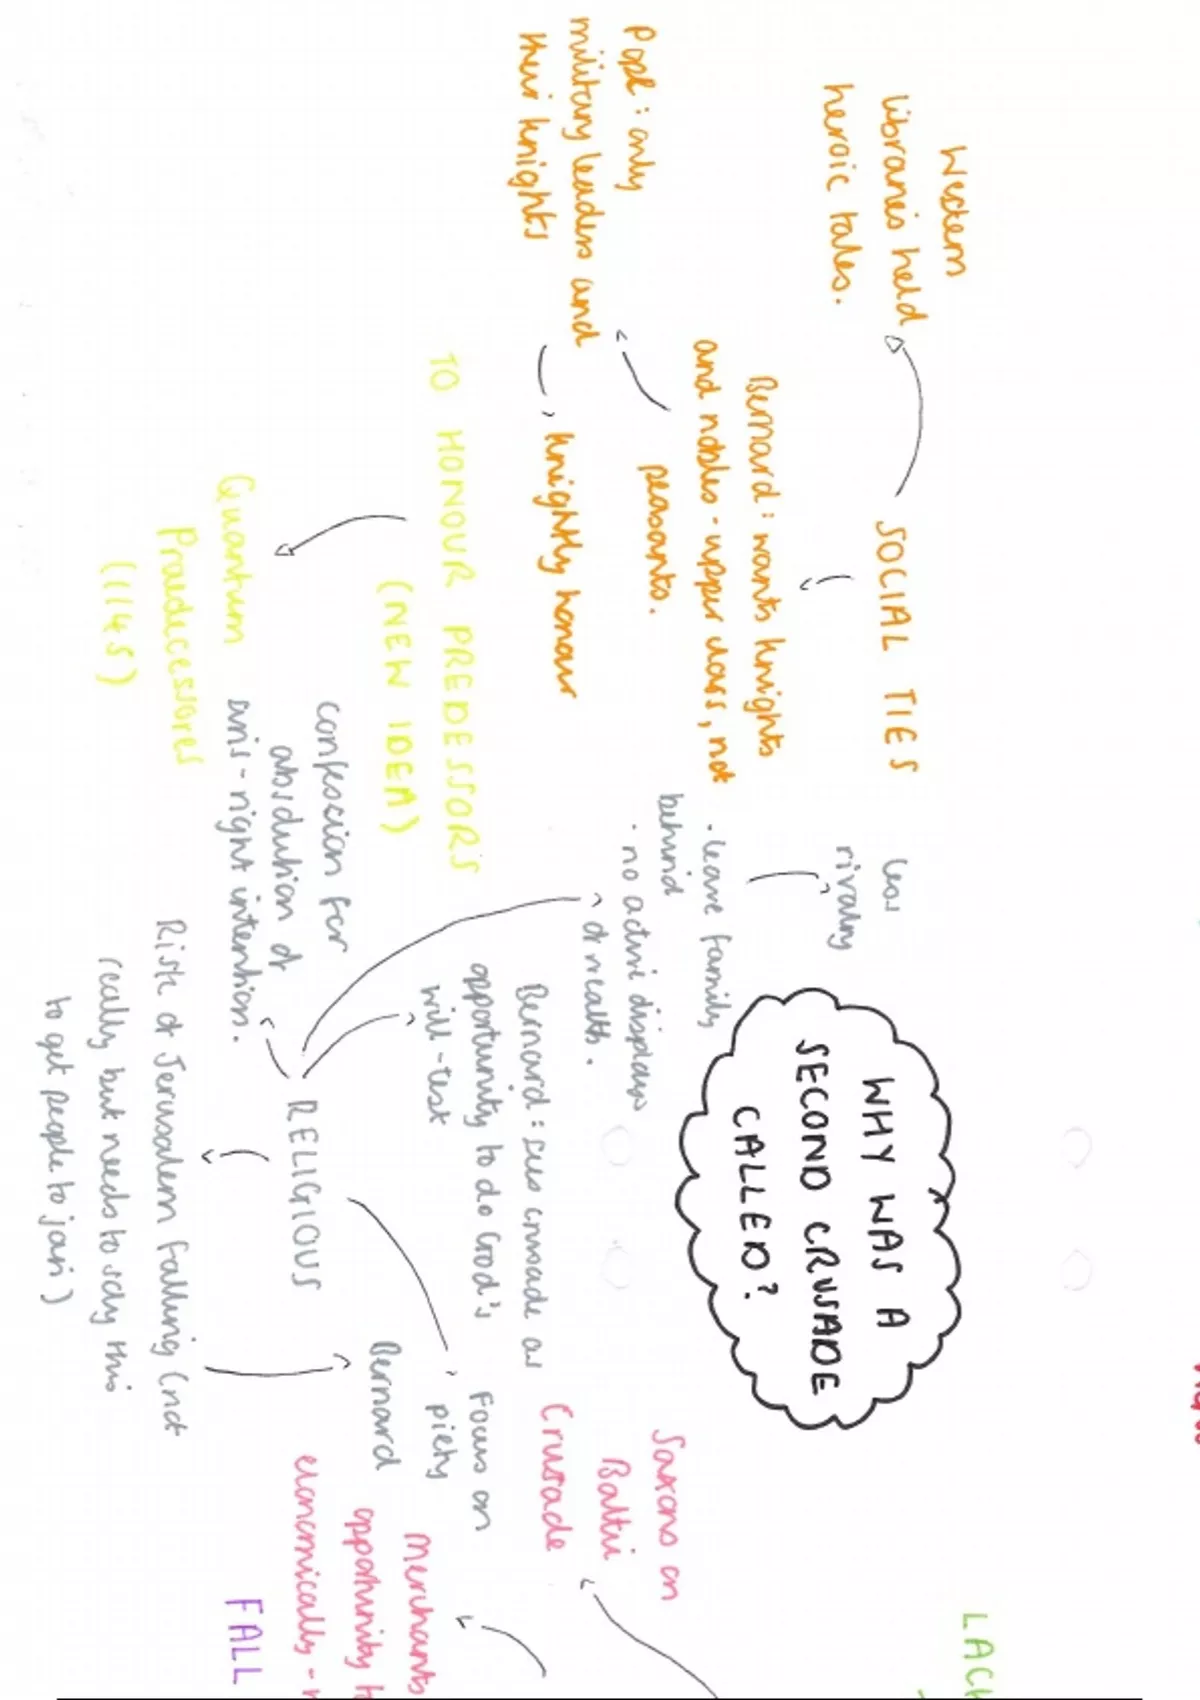 WHY WAS A
SECOND CRUSADE
CALLED?
SOCIAL TIES
Western
libraries held
heroic tales.
Bernard: wants knights
and nobles - upper class, not
peasants.
Pope: only
military leaders and
their knights
knightly honour
less
rivalry
• leave family
behind
• no active displays
of wealth.
TO HONOUR PREDESSORS
(NEW IDEA)
Quantum
Praedecessores
(1145)
confession for
absolution of
sins - right intention.
RELIGIOUS
Bernard: sees crusade as
opportunity to do God's
will - test
Risk of Jerusalem falling (not
really but needs to say this
to get people to join)
Bernard
Focus on
piety
Saxons on
Baltic
Crusade
Merchants
opportunity
economically -
FALL
LACK